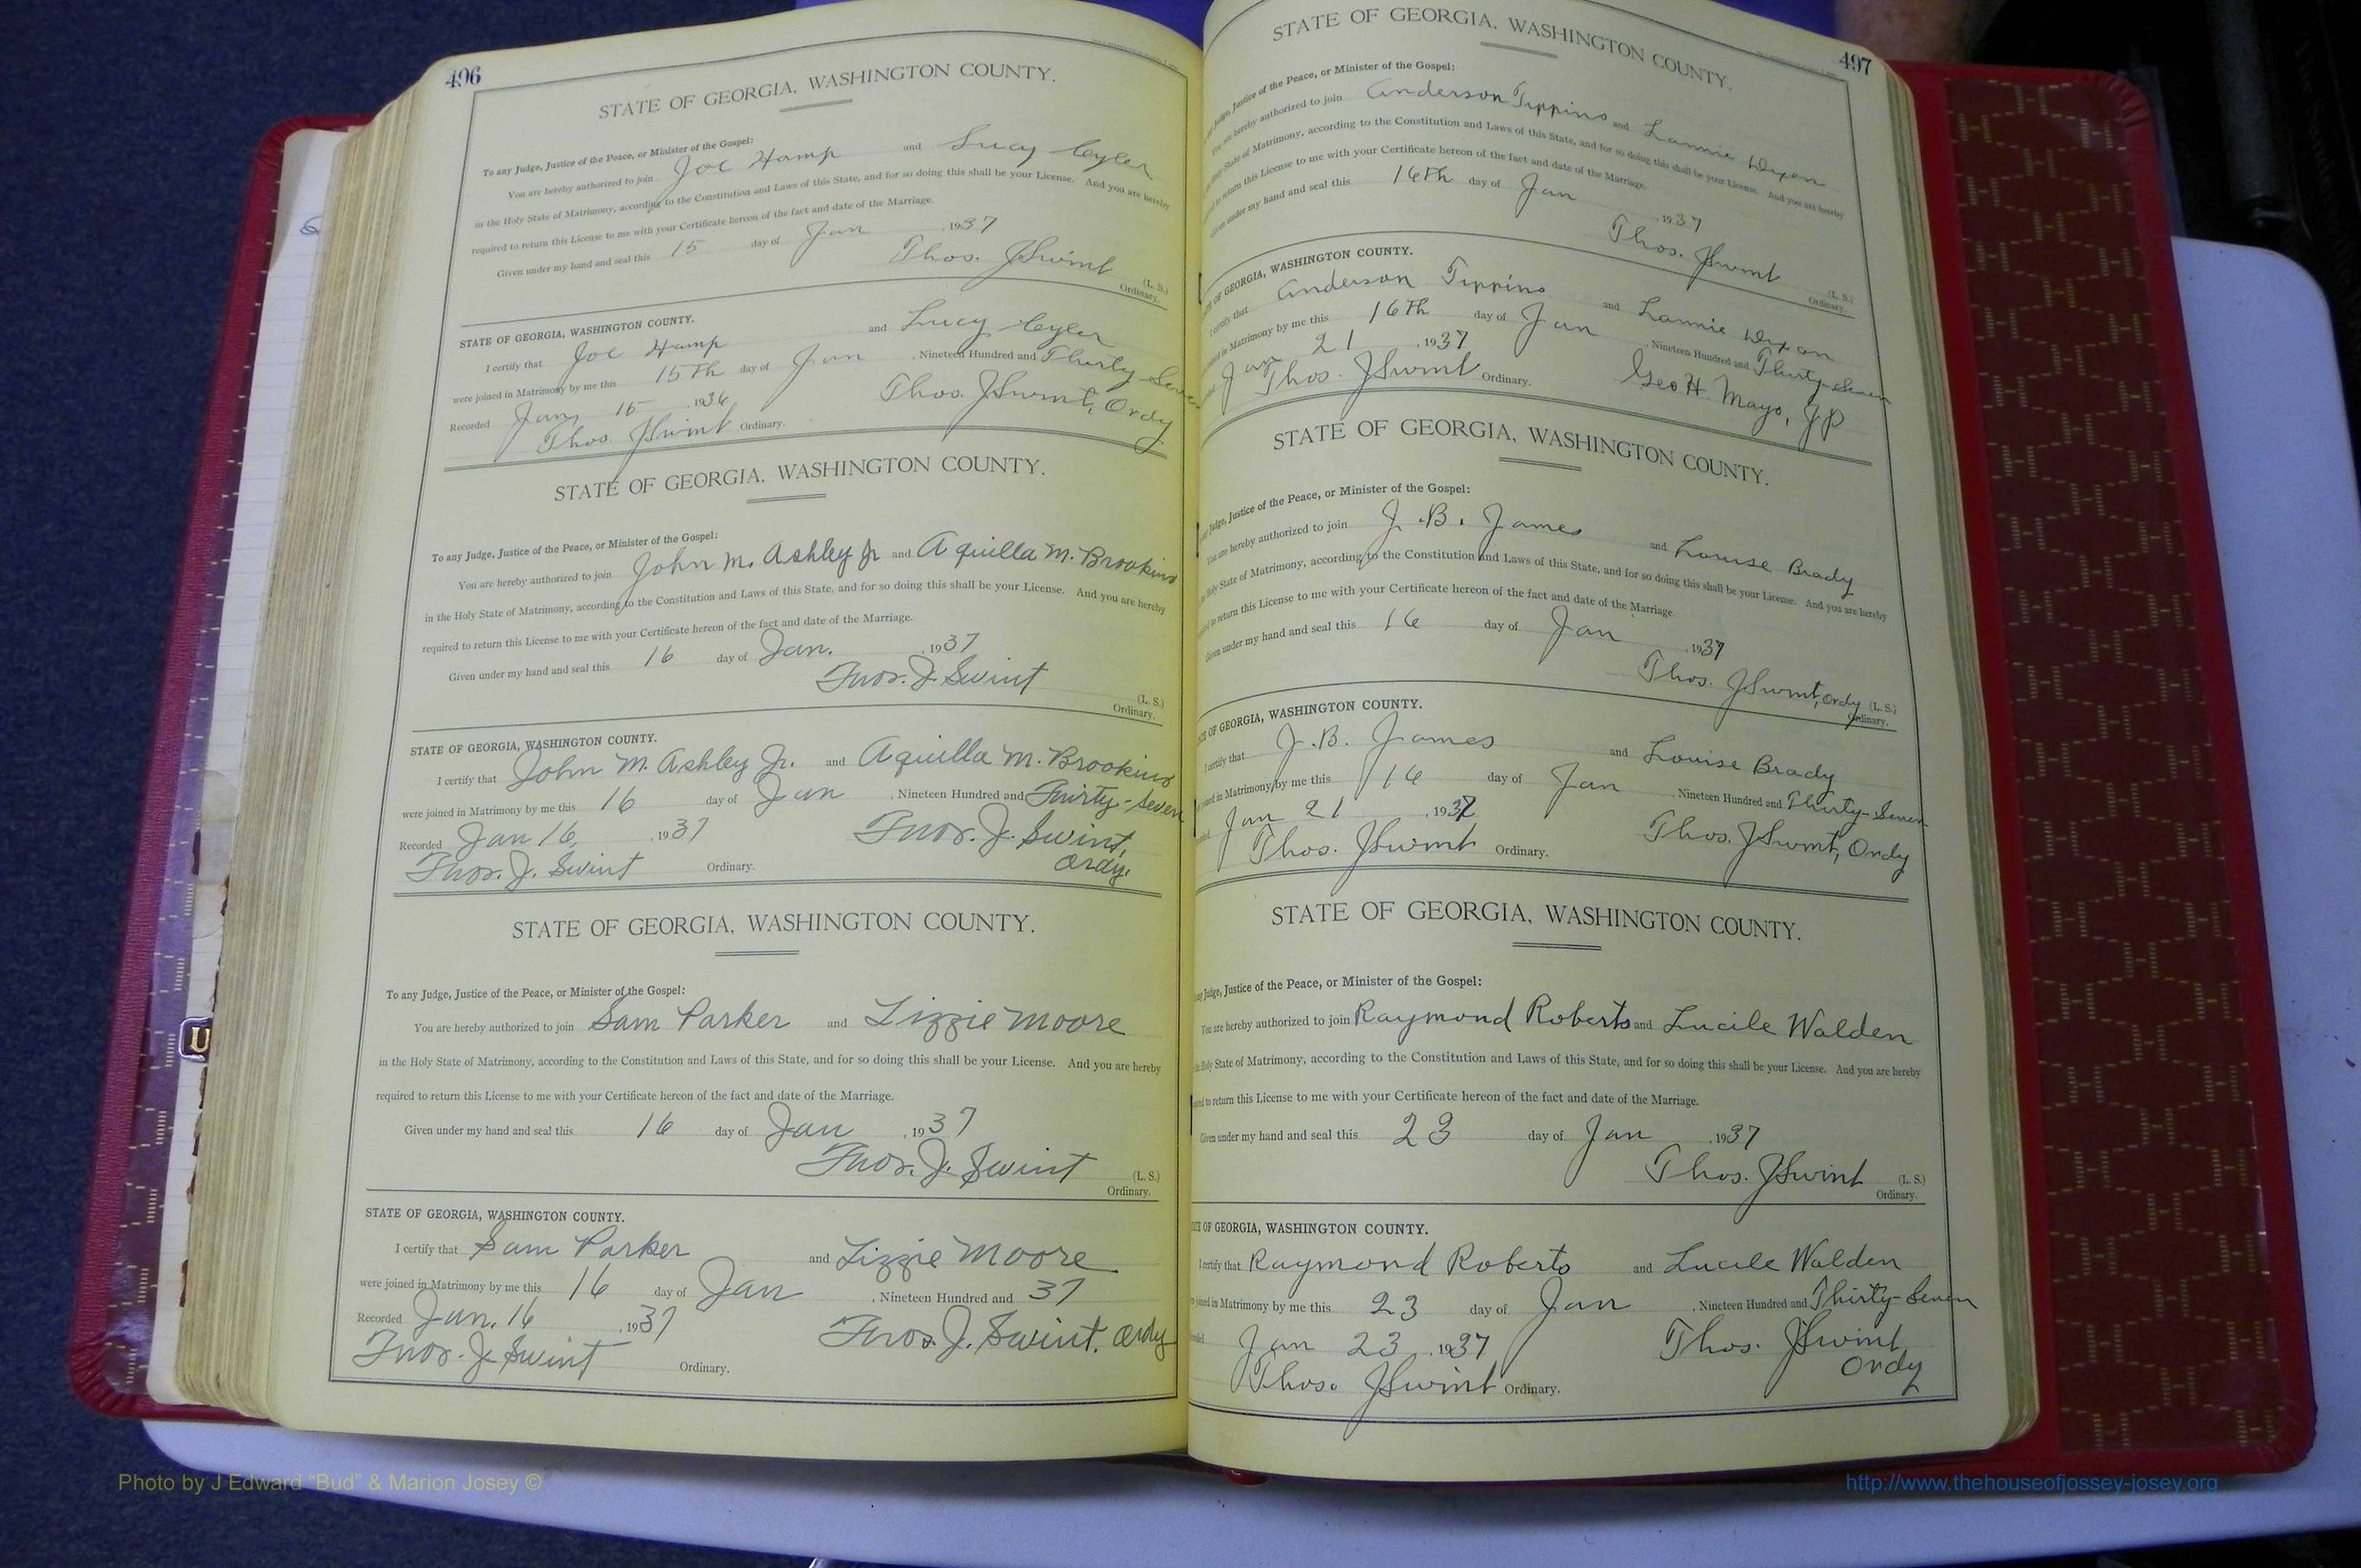 496
STATE OF GEORGIA, WASHINGTON COUNTY.
To any Judge, Justice of the Peace, or Minister of the Gospel:
You are hereby authorized to join Joe Hamp and Lucy Cyler
in the Holy State of Matrimony, according to the Constitution and Laws of this State, and for so doing this shall be your License. And you are hereby
required to return this License to me with your Certificate hereon of the fact and date of the Marriage.
Given under my hand and seal this 15 day of Jan , 1937
Thos. J Swint (L. S.)
Ordinary.
STATE OF GEORGIA, WASHINGTON COUNTY.
I certify that Joe Hamp and Lucy Cyler
were joined in Matrimony by me this 15th day of Jan , Nineteen Hundred and Thirty-Seven
Recorded Jan, 15 , 1936 Thos. J Swint, Ordy
Thos. J Swint Ordinary.
STATE OF GEORGIA, WASHINGTON COUNTY.
To any Judge, Justice of the Peace, or Minister of the Gospel:
You are hereby authorized to join John M. Ashley Jr and Aquilla M. Brookins
in the Holy State of Matrimony, according to the Constitution and Laws of this State, and for so doing this shall be your License. And you are hereby
required to return this License to me with your Certificate hereon of the fact and date of the Marriage.
Given under my hand and seal this 16 day of Jan. , 1937
Thos. J. Swint (L. S.)
Ordinary.
STATE OF GEORGIA, WASHINGTON COUNTY.
I certify that John M. Ashley Jr. and Aquilla M. Brookins
were joined in Matrimony by me this 16 day of Jan , Nineteen Hundred and Thirty-Seven
Recorded Jan 16, , 1937 Thos. J. Swint,
Thos. J. Swint Ordinary. Ordy.
STATE OF GEORGIA, WASHINGTON COUNTY.
To any Judge, Justice of the Peace, or Minister of the Gospel:
You are hereby authorized to join Sam Parker and Lizzie Moore
in the Holy State of Matrimony, according to the Constitution and Laws of this State, and for so doing this shall be your License. And you are hereby
required to return this License to me with your Certificate hereon of the fact and date of the Marriage.
Given under my hand and seal this 16 day of Jan , 1937
Thos. J. Swint (L. S.)
Ordinary.
STATE OF GEORGIA, WASHINGTON COUNTY.
I certify that Sam Parker and Lizzie Moore
were joined in Matrimony by me this 16 day of Jan , Nineteen Hundred and 37
Recorded Jan. 16 , 1937 Thos. J. Swint, Ordy
Thos. J. Swint Ordinary.
497
STATE OF GEORGIA, WASHINGTON COUNTY.
Judge, Justice of the Peace, or Minister of the Gospel:
You are hereby authorized to join Anderson Tippins and Lannie Dixon
State of Matrimony, according to the Constitution and Laws of this State, and for so doing this shall be your License. And you are hereby
to return this License to me with your Certificate hereon of the fact and date of the Marriage.
Given under my hand and seal this 16th day of Jan , 1937
Thos. J Swint (L. S.)
Ordinary.
OF GEORGIA, WASHINGTON COUNTY.
I certify that Anderson Tippins and Lannie Dixon
in Matrimony by me this 16th day of Jan , Nineteen Hundred and Thirty-Seven
Jan 21 , 1937 Geo H. Mayo, JP
Thos. J Swint Ordinary.
STATE OF GEORGIA, WASHINGTON COUNTY.
Judge, Justice of the Peace, or Minister of the Gospel:
You are hereby authorized to join J. B. James and Louise Brady
Holy State of Matrimony, according to the Constitution and Laws of this State, and for so doing this shall be your License. And you are hereby
to return this License to me with your Certificate hereon of the fact and date of the Marriage
Given under my hand and seal this 16 day of Jan , 1937
Thos. J Swint, Ordy (L. S.)
Ordinary.
OF GEORGIA, WASHINGTON COUNTY.
I certify that J. B. James and Louise Brady
joined in Matrimony by me this 16 day of Jan , Nineteen Hundred and Thirty-Seven
Jan 21 , 1937 Thos. J Swint, Ordy
Thos. J Swint Ordinary.
STATE OF GEORGIA, WASHINGTON COUNTY.
Judge, Justice of the Peace, or Minister of the Gospel:
You are hereby authorized to join Raymond Roberts and Lucile Walden
Holy State of Matrimony, according to the Constitution and Laws of this State, and for so doing this shall be your License. And you are hereby
to return this License to me with your Certificate hereon of the fact and date of the Marriage.
Given under my hand and seal this 23 day of Jan , 1937
Thos. J Swint (L. S.)
Ordinary.
OF GEORGIA, WASHINGTON COUNTY.
I certify that Raymond Roberts and Lucile Walden
joined in Matrimony by me this 23 day of Jan , Nineteen Hundred and Thirty-Seven
Jan 23 , 1937 Thos. J Swint
Thos. J Swint Ordinary. Ordy
Photo by J Edward “Bud” & Marion Josey ©
http://www.thehouseofjossey-josey.org